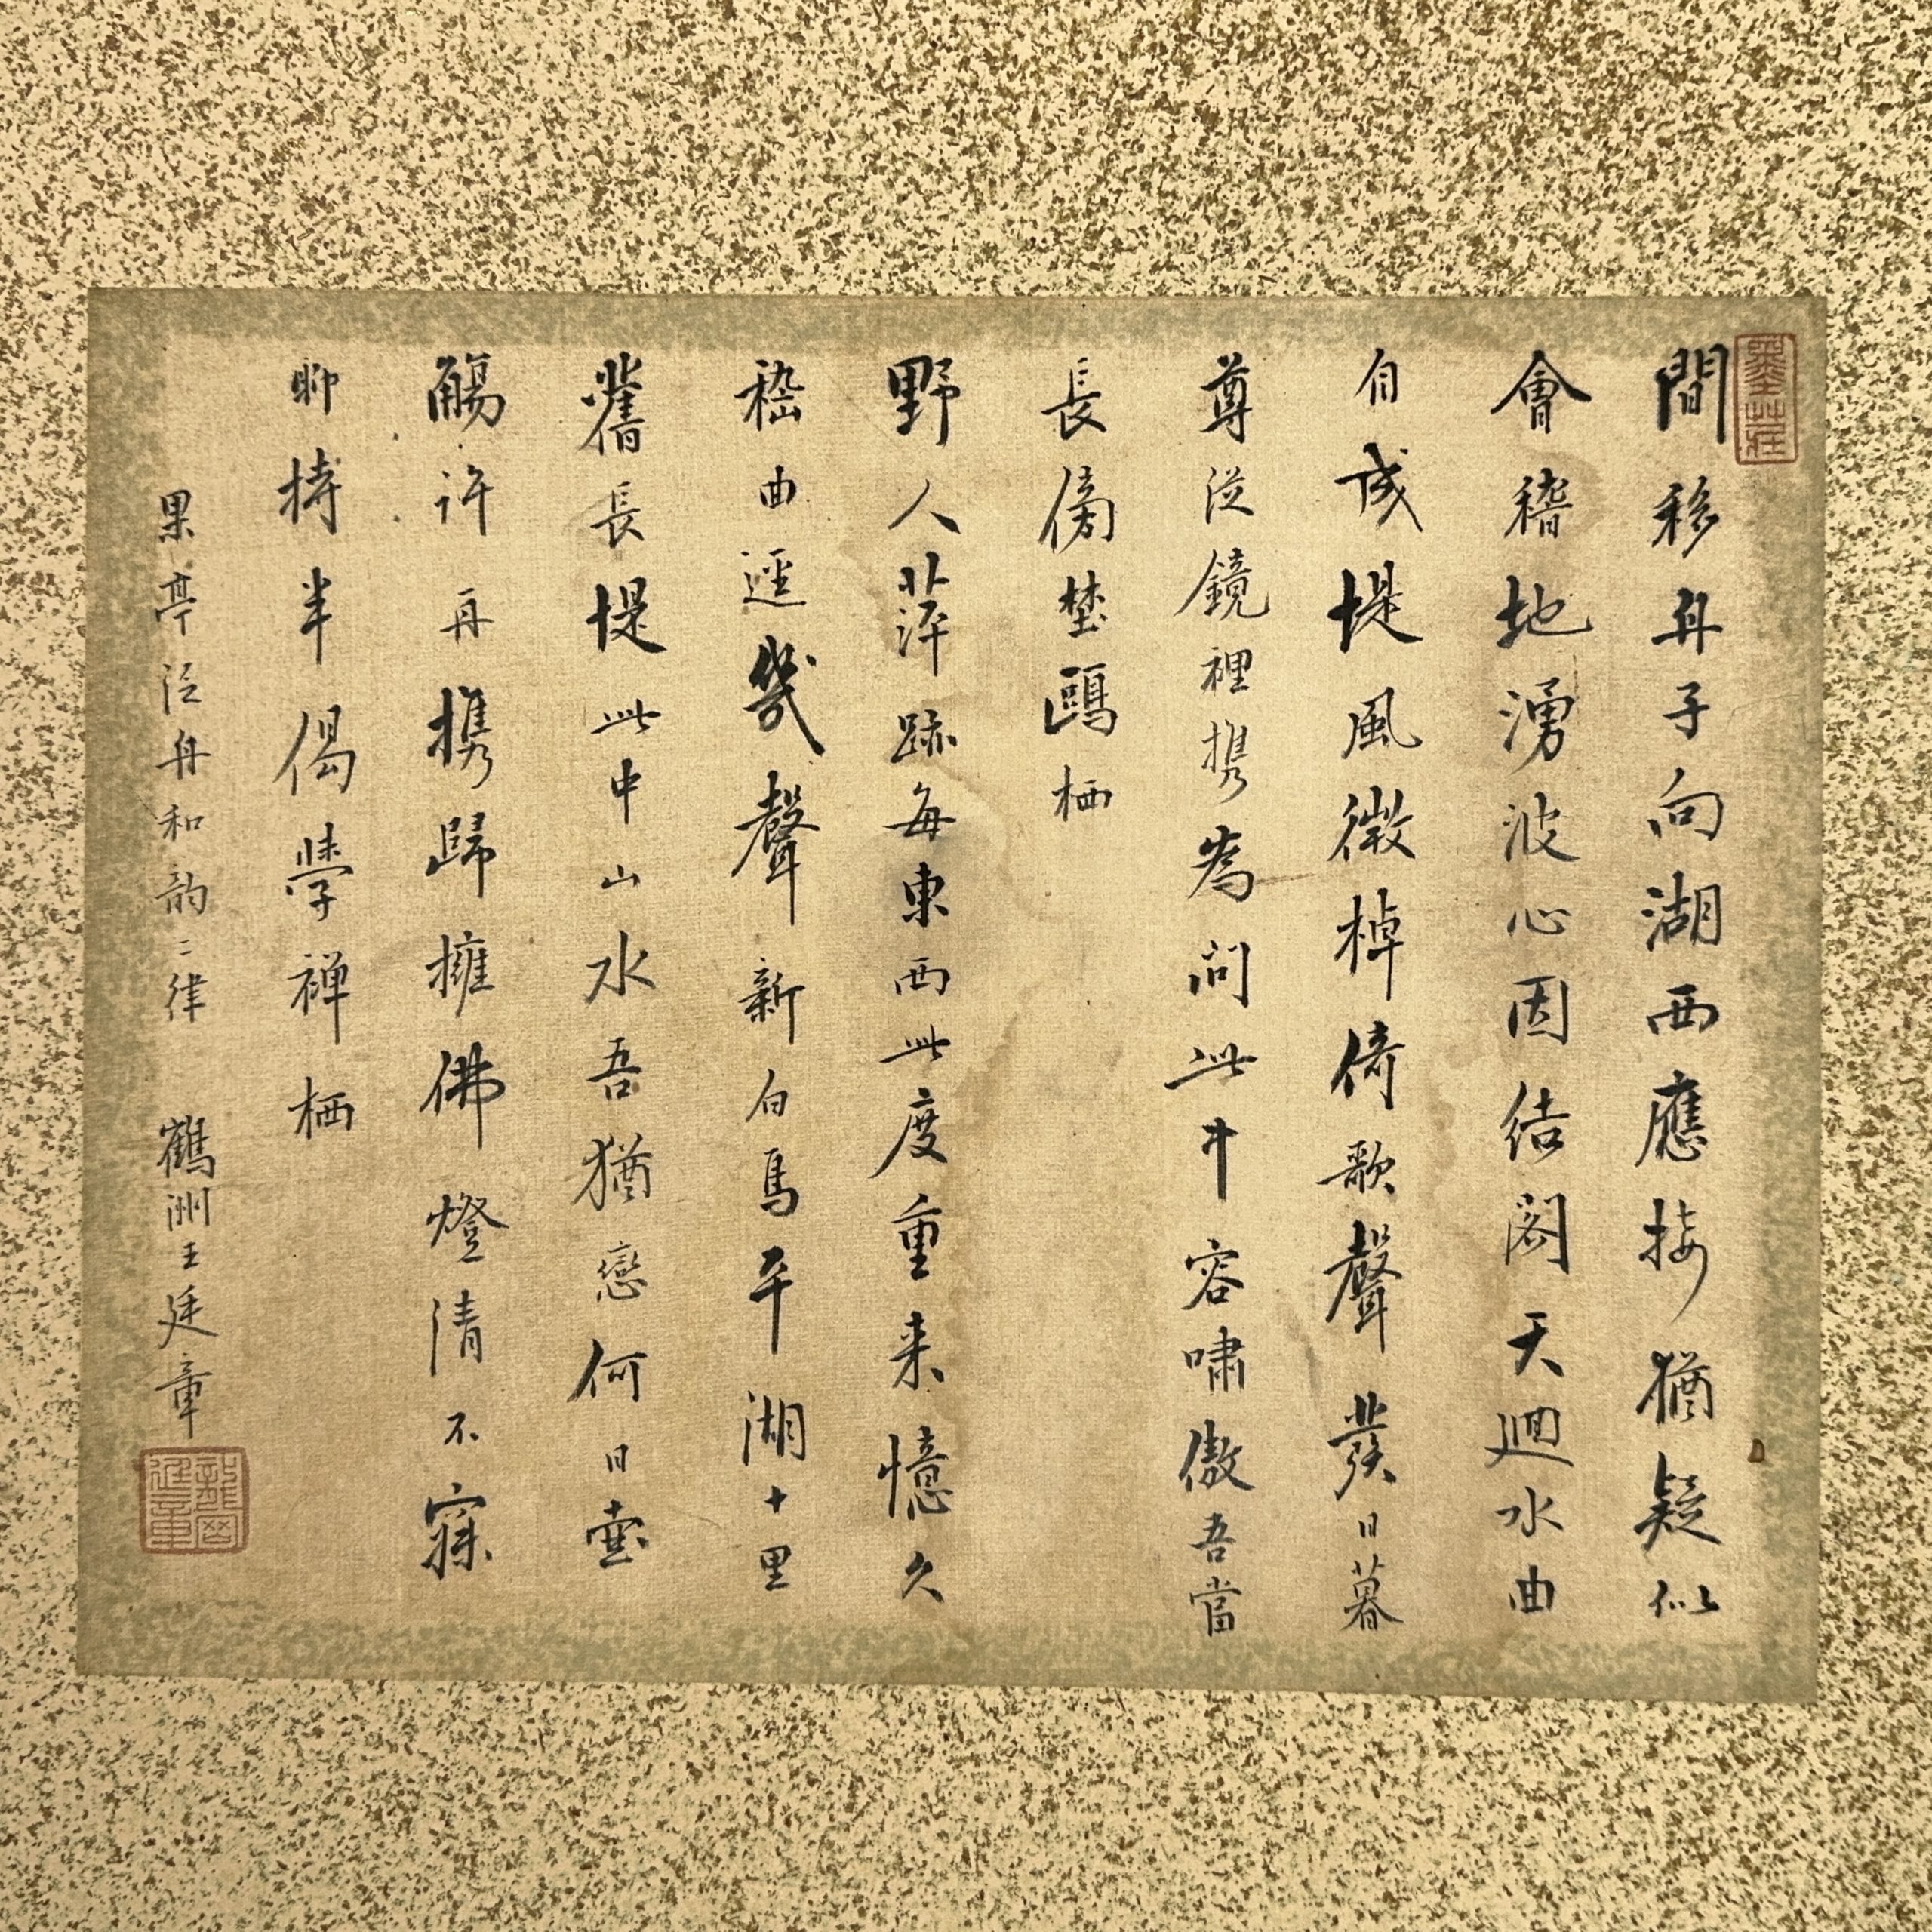 間移舟子向湖西應接猶疑似
會稽地湧波心因結閣天迴水曲
自成堤風微棹倚歌聲發日暮
尊從鏡裡携為問此中容嘯傲吾當
長傍埜鷗栖
野人萍跡每東西此度重来憶久
嵇曲逕幾聲新白鳥平湖十里
舊長堤此中山水吾猶戀何日壺
觴許再携歸擁佛燈清不寐
聊持半偈學禅栖
果亭泛舟和韵二律 鶴洲王廷章